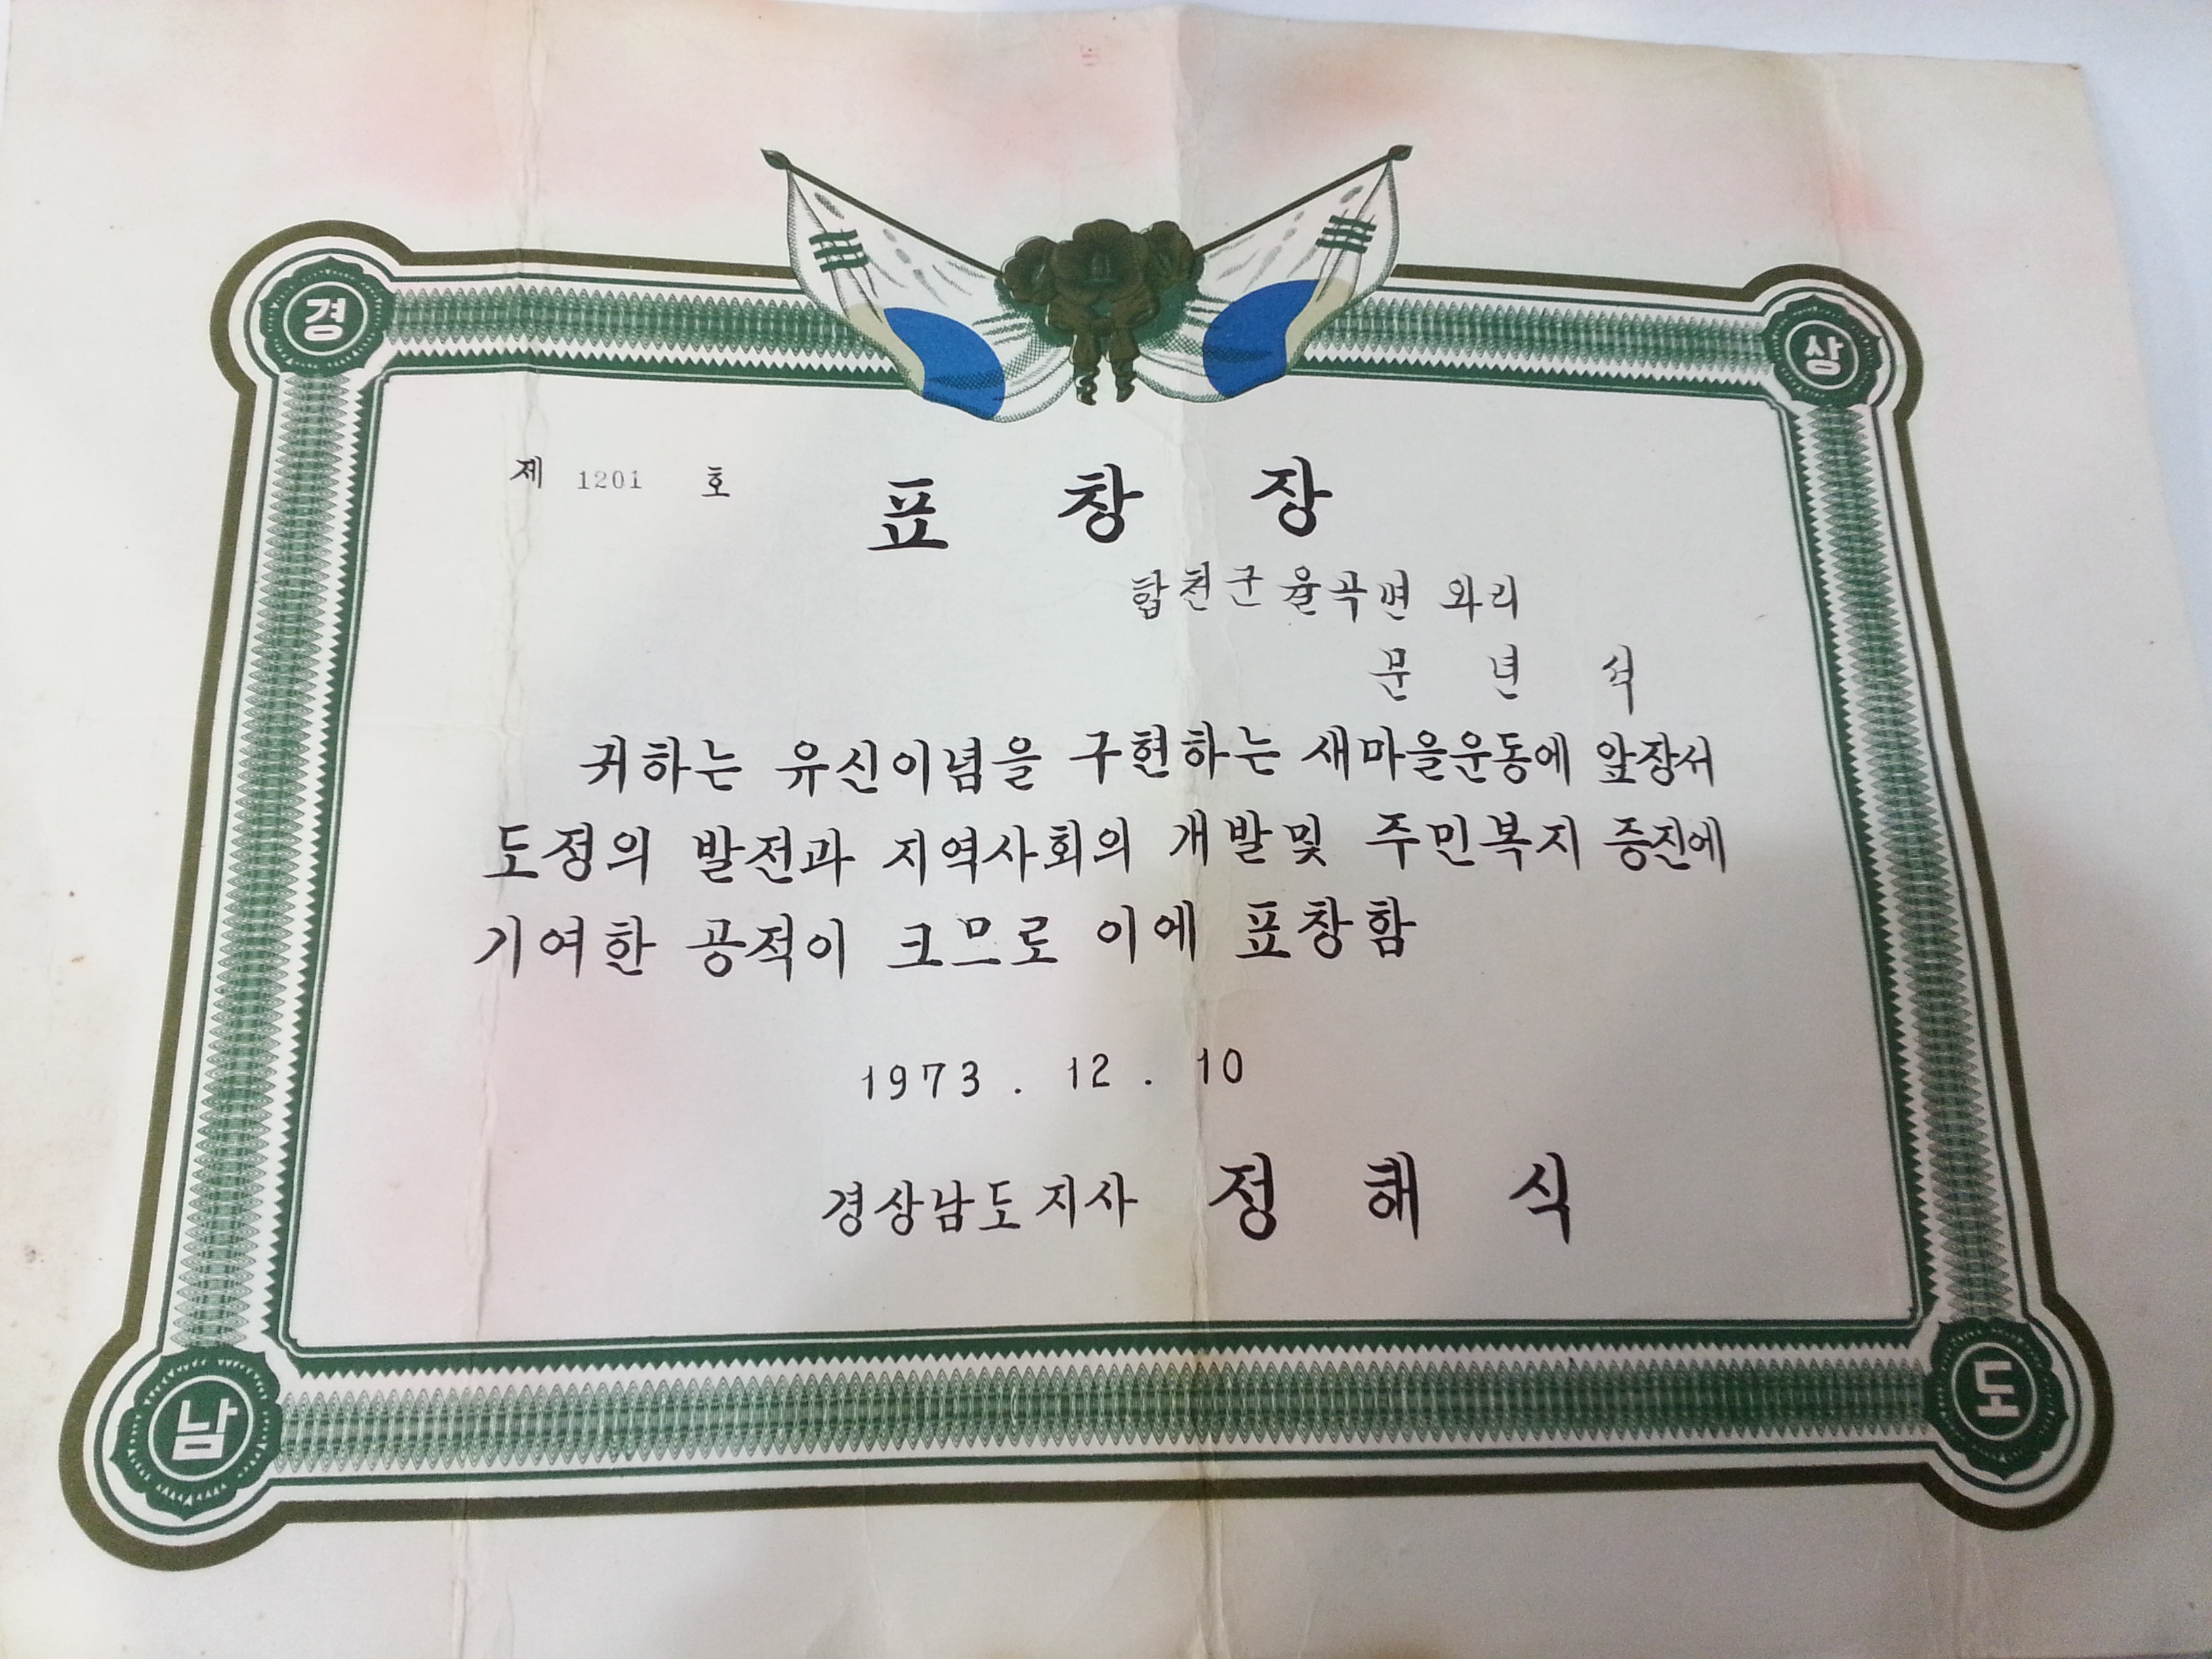 경 상
제 1201 호 표 창 장
합천군 율곡면 와리
문 년 석
귀하는 유신이념을 구현하는 새마을운동에 앞장서
도정의 발전과 지역사회의 개발및 주민복지 증진에
기여한 공적이 크므로 이에 표창함
1973 . 12 . 10
경상남도지사 정 해 식
남 도